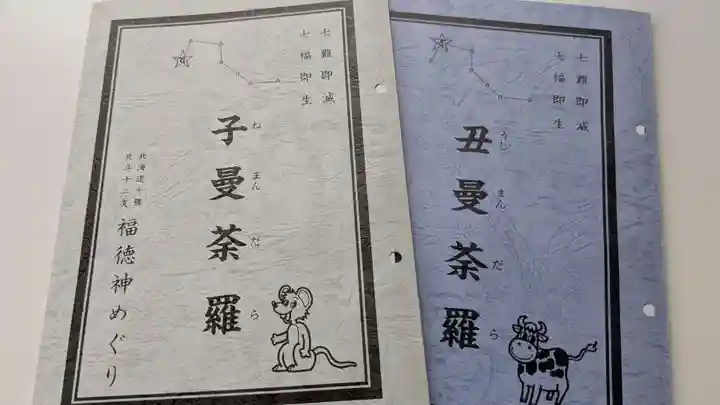 七難即滅
七福即生
子曼荼羅
ね まん だ ら
北海道十勝
北斗十二支
福徳神めぐり
七難即滅
七福即生
丑曼荼羅
うし まん だ ら